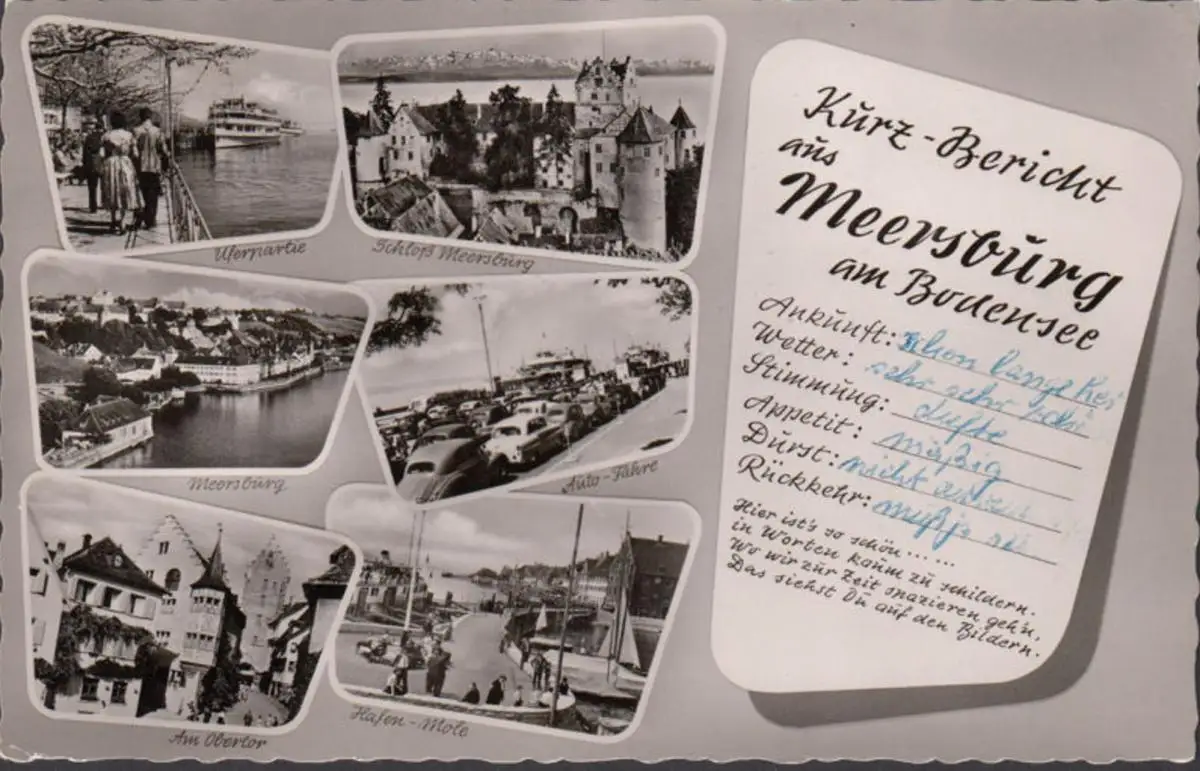 Uferpartie
Schloß Meersburg
Meersburg
Auto-Fähre
Am Obertor
Hafen-Mole
Kurz-Bericht
aus
Meersburg
am Bodensee
Ankunft: schon lange her
Wetter: sehr sehr
Stimmung: dufte
Appetit: mäßig
Durst: nicht
Rückkehr:
Hier ist's so schön......
in Worten kaum zu schildern.
Wo wir zur Zeit spazieren geh'n,
Das siehst Du auf den Bildern.